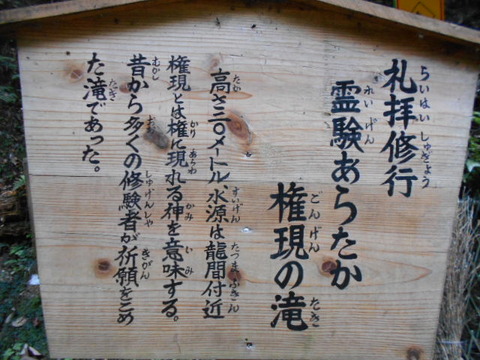 礼拝修行
霊験あらたか
権現の滝
高さ二〇メートル、水源は龍間付近
権現とは権に現れる神を意味する。
昔から多くの修験者が祈願をこめ
た滝であった。